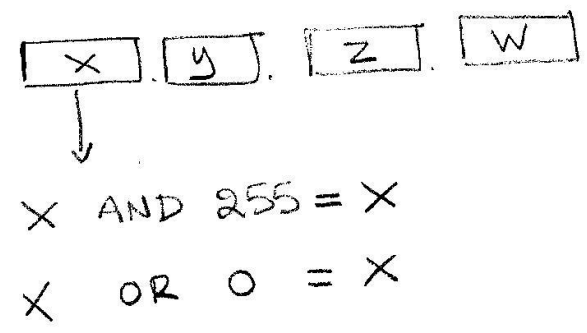 x . y . z . w
X AND 255 = X
X OR 0 = X